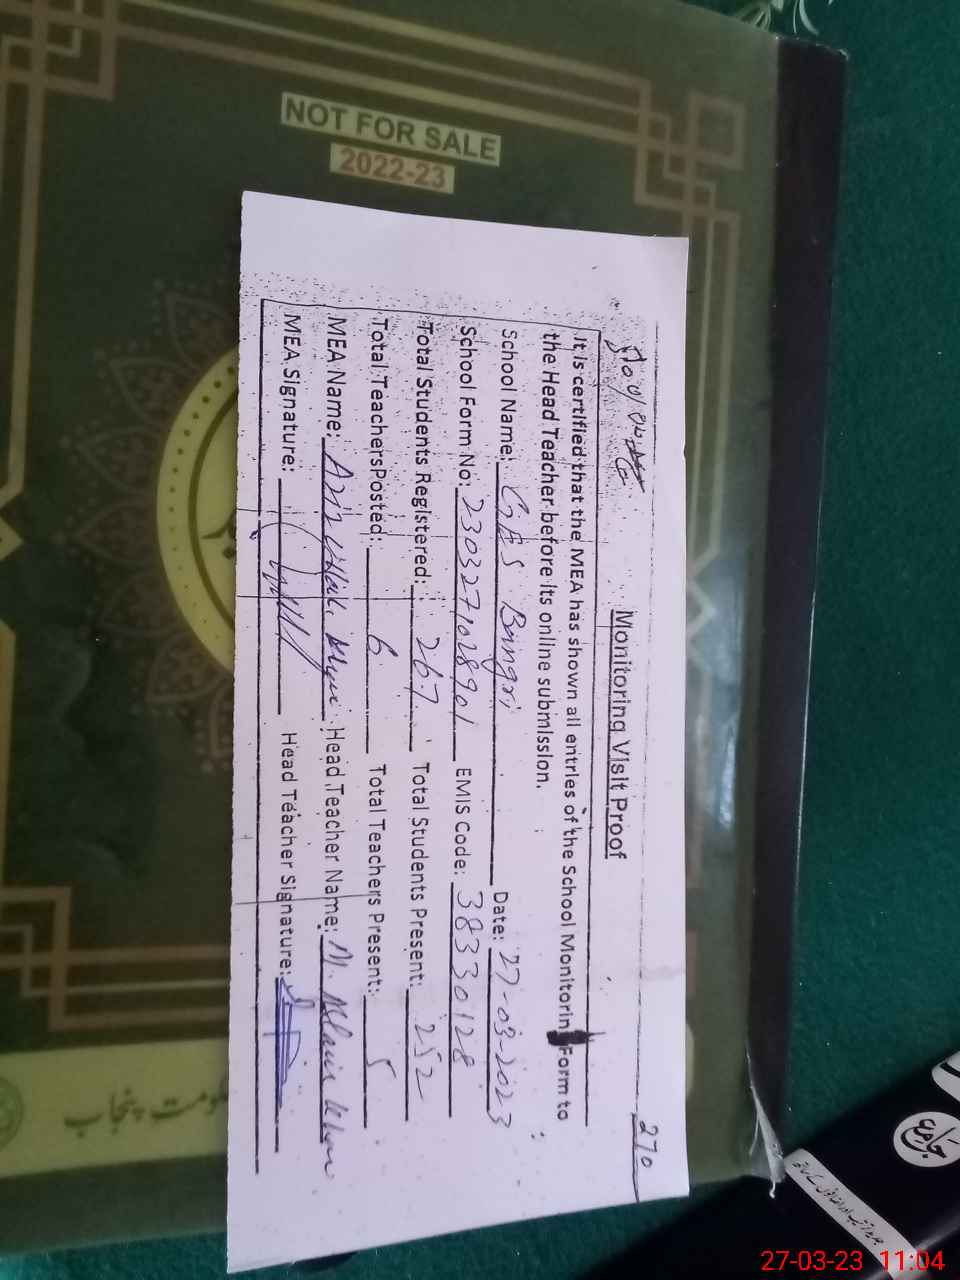 NOT FOR SALE
2022-23
270
Monitoring Visit Proof
It is certified that the MEA has shown all entries of the School Monitoring Form to
the Head Teacher before its online submission.
School Name: GES Bangxi Date: 27-03-2023
School Form No: 2303271028901 EMIS Code: 38330128
Total Students Registered: 267 Total Students Present: 252
Total Teachers Posted: 6 Total Teachers Present: 5
MEA Name: Head Teacher Name: M.
MEA Signature: Head Teacher Signature:
حکومت پنجاب
جامع
27-03-23 11:04